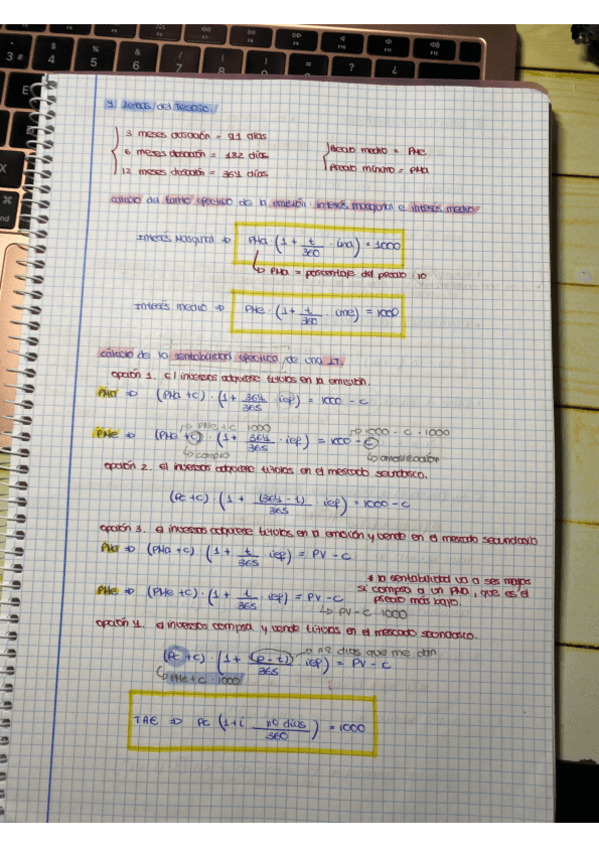 4) Letras del Tesoro/
3 meses duración = 91 días
6 meses duración = 182 días
12 meses duración = 364 días
Precio medio = PMe
Precio mínimo = PMa
cálculo del tanto efectivo de la emisión: interés marginal e interés medio
Interés Marginal => PMa (1 + t/360 · ima) = 1000
↳ PMa = porcentaje del precio · 10
Interés medio => PMe · (1 + t/360 · ime) = 1000
cálculo de la rentabilidad efectiva de una LT.
opción 1. el inversor adquiere títulos en la emisión.
PMa => (PMa + c) · (1 + 364/365 · ief) = 1000 - c
PMe + c · 1000
1000 - c · 1000
PMe => (PMe + c) · (1 + 364/365 · ief) = 1000 - c
↳ compra
↳ amortización
opción 2. el inversor adquiere títulos en el mercado secundario.
(Pc + c) · (1 + (364 - t)/365 · ief) = 1000 - c
opción 3. el inversor adquiere títulos en la emisión y vende en el mercado secundario
PMa => (PMa + c) (1 + t/365 · ief) = PV - c
* la rentabilidad va a ser mayor
si compro a un PMa, que es el
precio más bajo.
PMe => (PMe + c) · (1 + t/365 · ief) = PV - c
↳ PV - c · 1000
opción 4. el inversor compra y vende títulos en el mercado secundario.
nº días que me dan
(Pc + c) · (1 + (e - t)/365 · ief) = PV - c
↳ PMe + c · 1000
TAE => Pc (1 + i nº días/360) = 1000